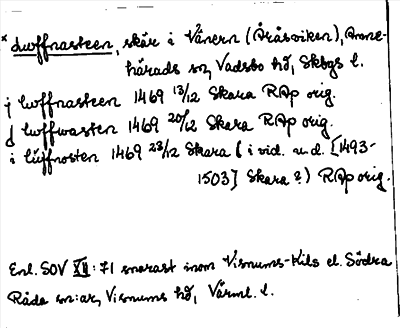 * Luffnasteen, skär i Vänern (Åråsviken), Amne-
härads sn, Vadsbo hd, Skbgs l.
j luffnasteen 1469 13/12 Skara RAp orig.
d luffwasten 1469 20/12 Skara RAp orig.
i lúffnosten 1469 23/12 Skara (i vid. u.d. [1493-
1503] Skara?) RAp orig.
Enl. SOV XII:71 snarast inom Visnums-Kils el. Södra
Råda sn:ar, Visnums hd, Värml. l.